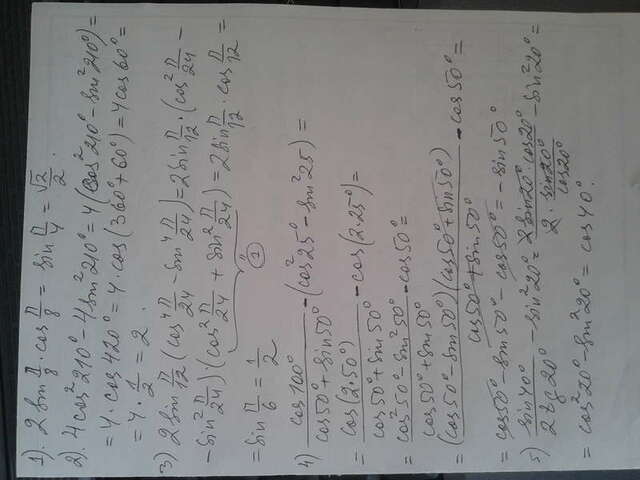 1). 2 sin π/8 · cos π/8 = sin π/4 = √2/2.
2). 4cos²210° - 4sin²210° = 4(cos²210° - sin²210°) =
= 4·cos420° = 4·cos(360°+60°) = 4cos60° =
= 4·1/2 = 2.
3) 2sin π/12 (cos⁴ π/24 - sin⁴ π/24) = 2sin π/12 · (cos² π/24 -
- sin² π/24)·(cos² π/24 + sin² π/24) = 2sin π/12 · cos π/12 =
"
1
= sin π/6 = 1/2
4) cos100°/(cos50°+sin50°) - (cos²25° - sin²25) =
= cos(2·50°)/(cos50°+sin50°) - cos(2·25°) =
= (cos²50° - sin²50°)/(cos50°+sin50°) - cos50° =
= (cos50°-sin50°)(cos50°+sin50°)/(cos50°+sin50°) - cos50° =
= cos50° - sin50° - cos50° = -sin50°
5) sin40°/(2tg20°) - sin²20° = (2sin20° cos20°)/(2·sin20°/cos20°) - sin²20° =
= cos²20° - sin²20° = cos40°.